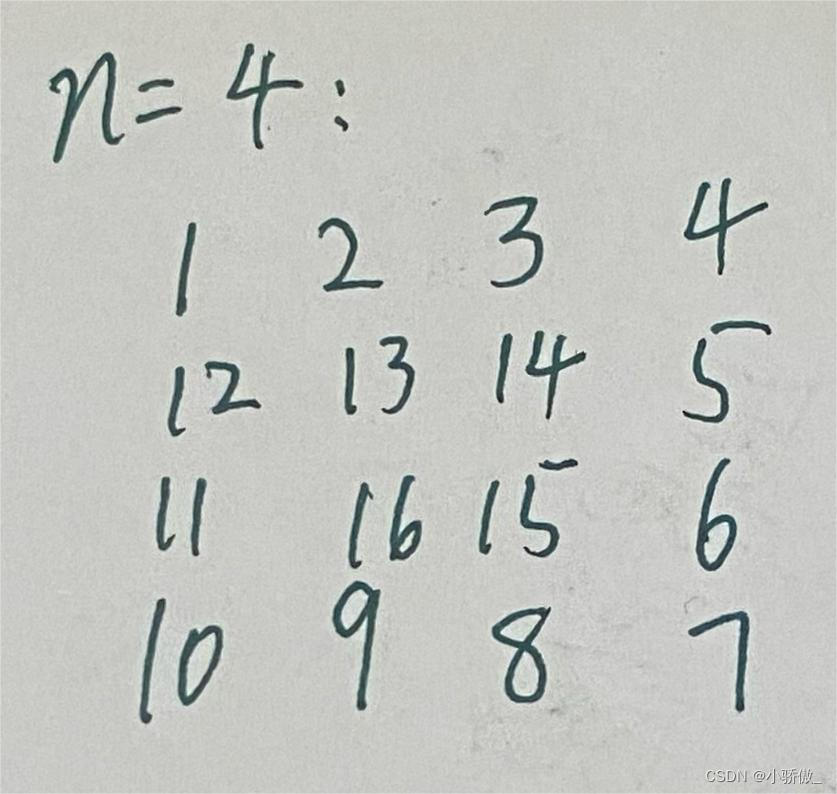 n=4:
1 2 3 4
12 13 14 5
11 16 15 6
10 9 8 7
CSDN @小骄傲_